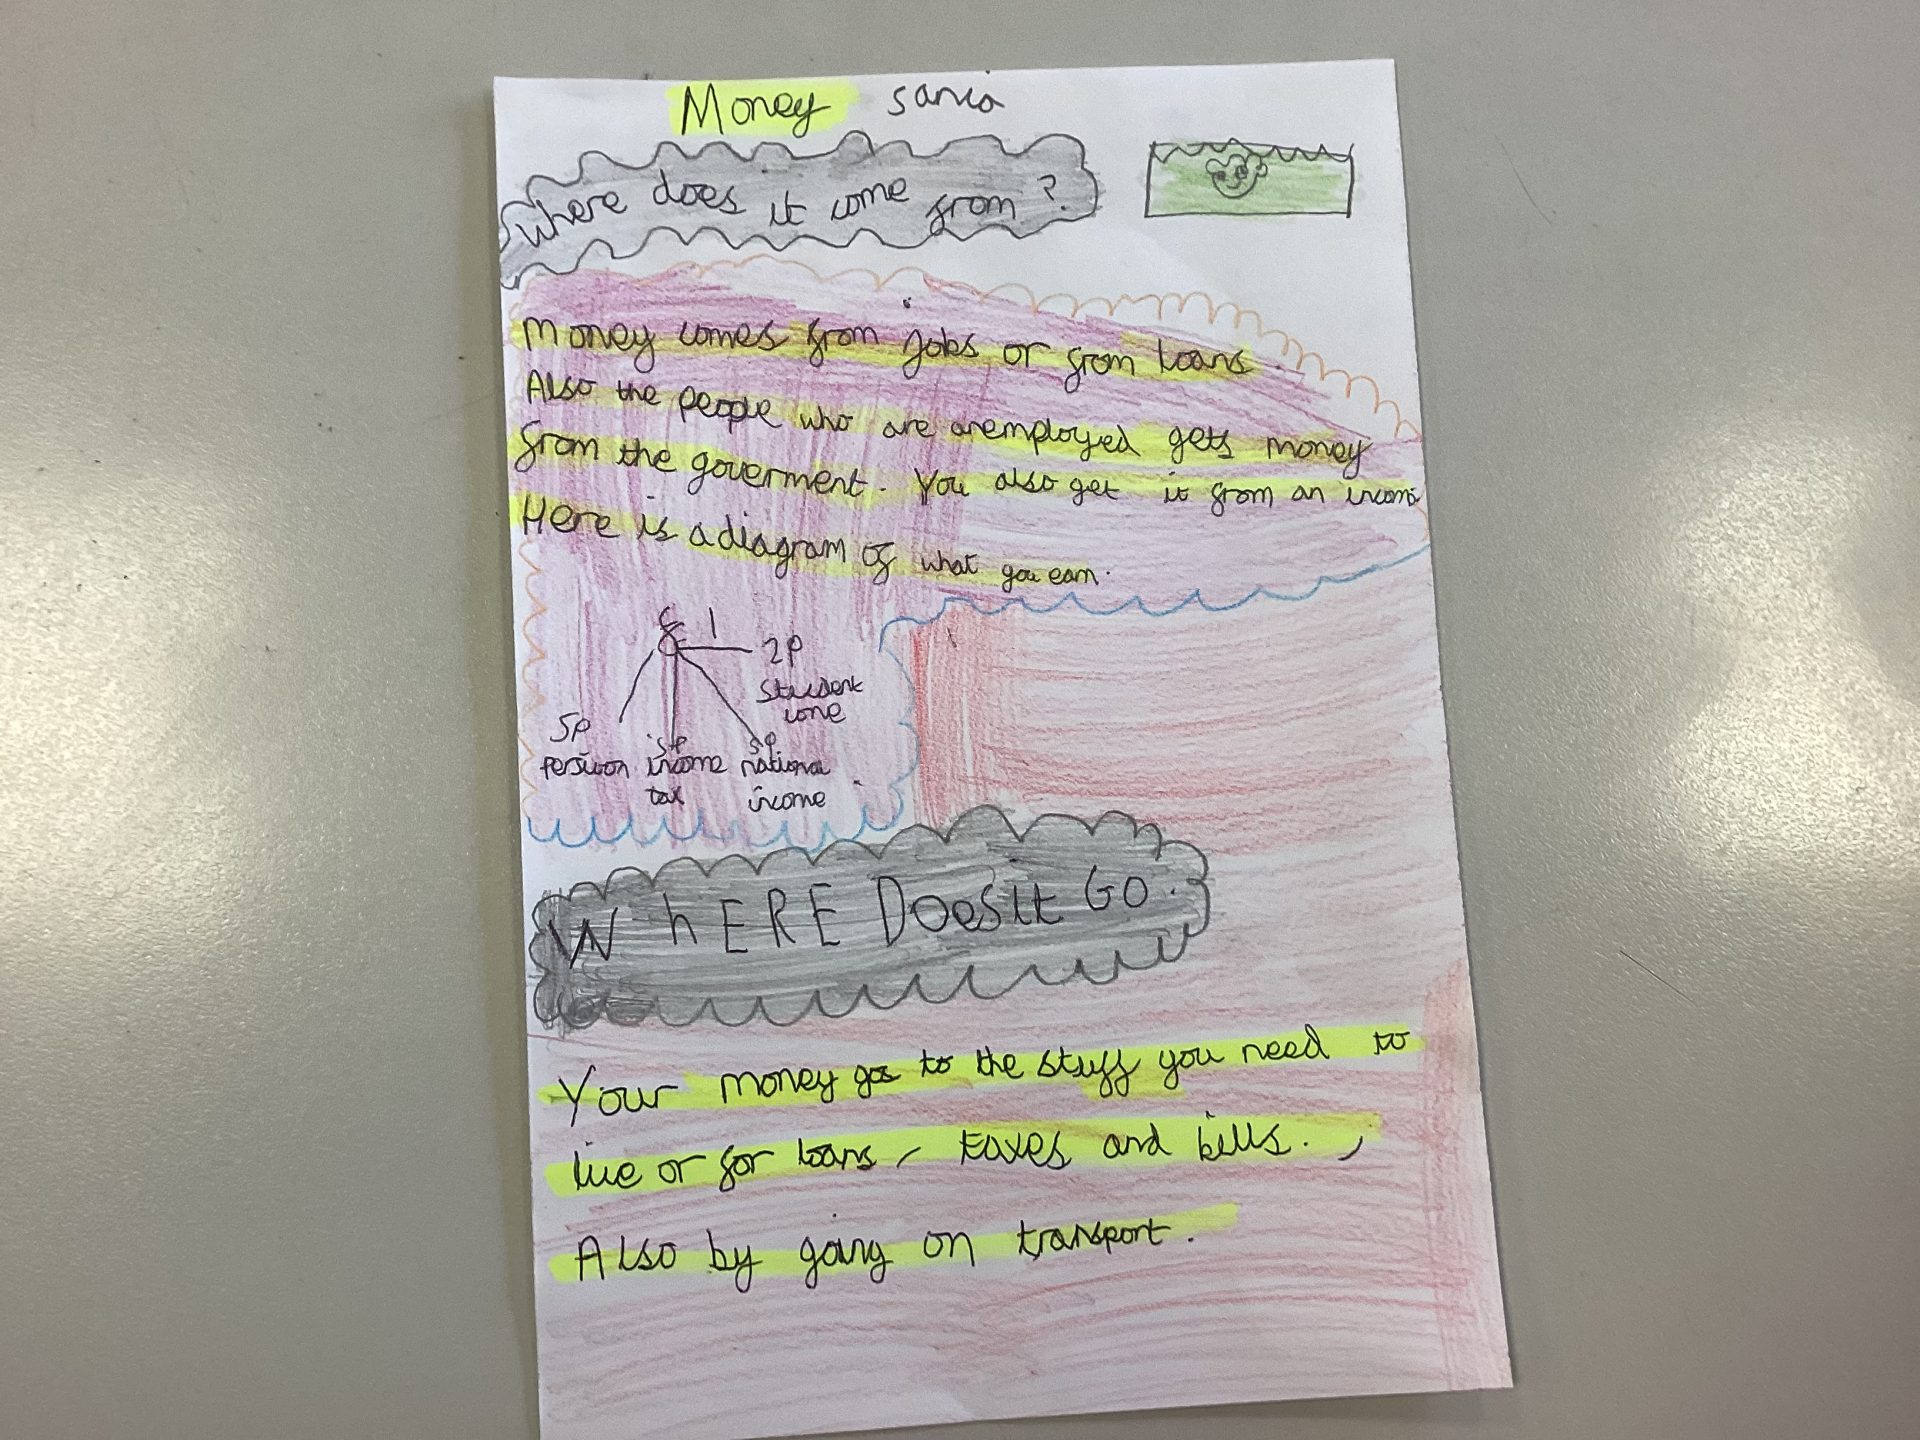 Money sania
Where does it come from?
Money comes from jobs or from loans.
Also the people who are unemployed gets money
from the goverment. You also get it from an income
Here is a diagram of what you earn.
£1
2p
student
lone
5p
5p
5p
persion
income
national
tax
income
WhERE Does it GO.
Your money gos to the stuff you need to
live or for loans, taxes and bills.,
Also by going on transport.